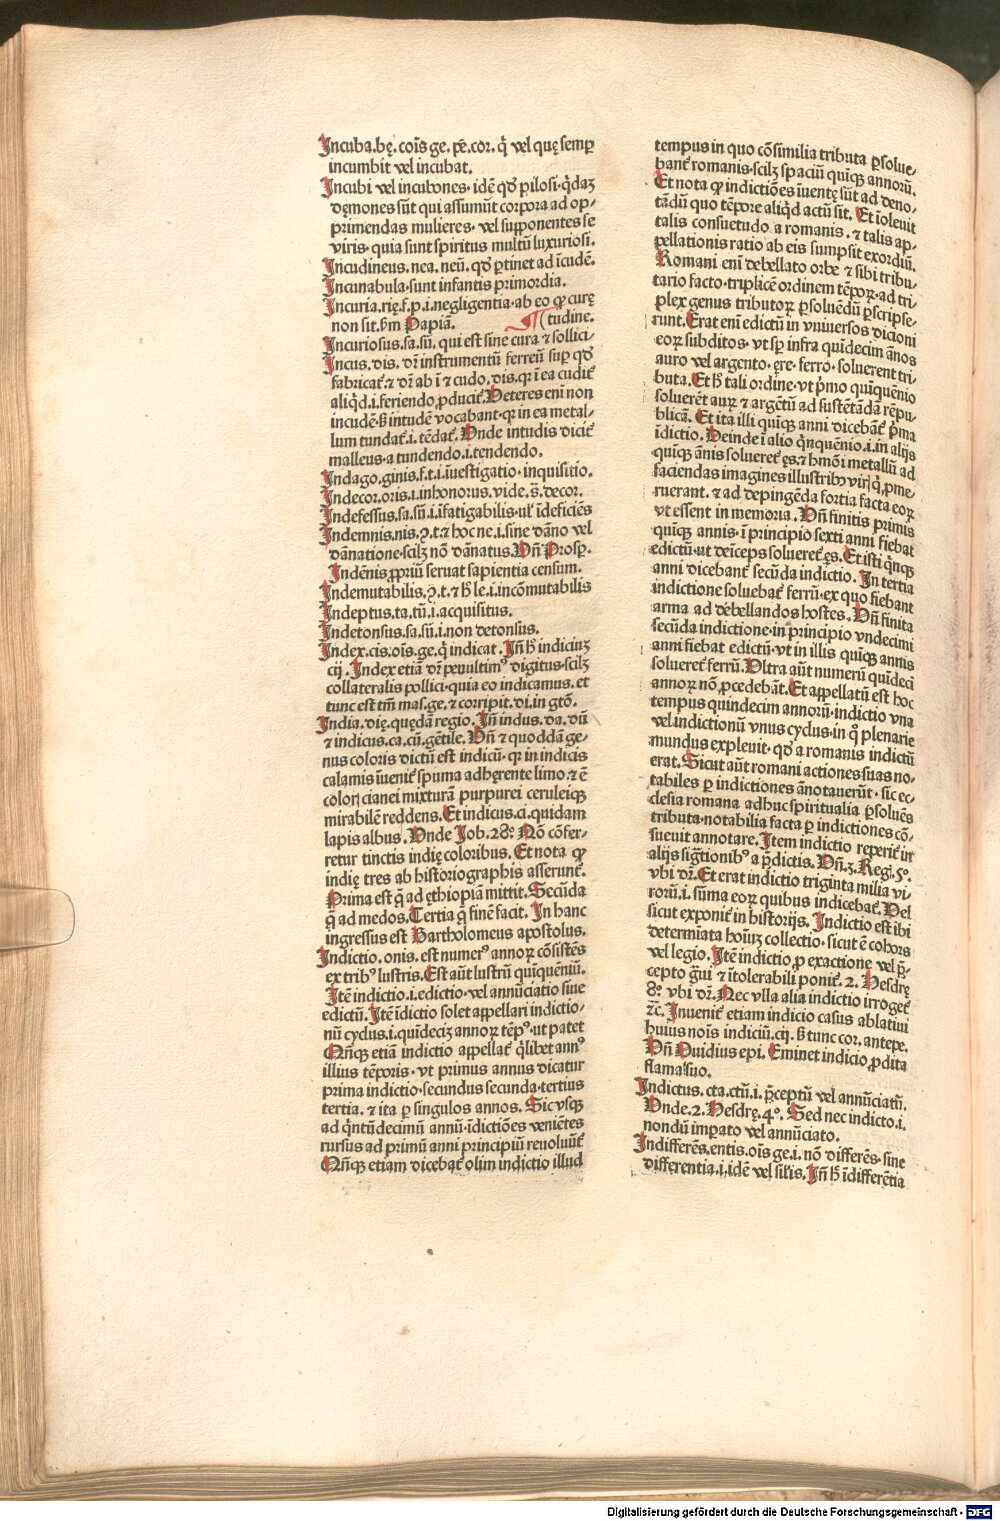 Incuba.bę. cõis ge. pẽ.cor. q̃ vel quę semp
incumbit vel incubat.
Incubi vel incubones· idẽ qd' pilosi· q̃daꝫ
dęmones sũt qui assumũt corpora ad op-
primendas mulieres· vel supponentes se
viris· quia sunt spiritus multũ luxuriosi.
Incudineus. nea. neũ. qd' ptinet ad ĩcudẽ.
Incunabula· sunt infantis primordia.
Incuria.rię.f.p.i.negligentia· ab eo ꝙ curę
non sit.ſm Papiã. (tudine.
Incuriosus.sa.sũ. qui est sine cura ⁊ sollici-
Incus. dis. dr̃ instrumentũ ferreũ sup qd'
fabricat̃. ⁊ dr̃ ab ĩ ⁊ cudo. dis. qꝛ ĩ ea cudit̃
aliq̃d.i.feriendo ꝓducit̃. Veteres eni non
incudẽ· sꝫ intudẽ vocabant· qꝛ in ea metal-
lum tundat̃.i.tẽdat̃. Vnde intudis dicit̃
malleus· a tundendo.i.tendendo.
Indago.ginis.f.t.i.ĩuestigatio· inquisitio.
Indecor.oris.i.inhonorus. vide. s̃. decor.
Indefessus.sa.sũ.i.ĩfatigabilis· ul' ĩdeficiẽs
Indemnis.nis.ꝯ.t.⁊ hoc ne.i.sine dãno vel
dãnatione· scilꝫ nõ dãnatus. Vñ Prosp.
Indẽnis ꝓpriũ seruat sapientia censum.
Indemutabilis.ꝯ.t.⁊ h' le.i.incõmutabilis
Indeptus.ta.tũ.i.acquisitus.
Indetonsus.sa.sũ.i.non detonsus.
Index.cis.oĩs.ge.q̃ indicat. Iñ h' indiciuꝫ
cij. Index etiã dr̃ penultimꝰ digitus· scilꝫ
collateralis pollici· quia eo indicamus. et
tunc est tm̃ mas.ge. ⁊ corripit. di. in gtõ.
India.dię. quędã regio. Iñ indus. da. dũ
⁊ indicus.ca.cũ.gẽtile. Vñ ⁊ quoddã ge-
nus coloris dictũ est indicũ· qꝛ in indicis
calamis ĩuenit̃ spuma adhęrente limo· ⁊ ẽ
colorꝭ cianei mixturã purpurei ceruleiqꝫ
mirabilẽ reddens. Et indicus.ci. quidam
lapis albus. Vnde Iob. 28°. Nõ cõfer-
retur tinctis indię coloribus. Et nota ꝙ
indię tres ab historiographis asserunt̃.
Prima est q̃ ad ęthiopiã mittit. Secũda
q̃ ad medos. Tertia q̃ finẽ facit. In hanc
ingressus est Bartholomeus apostolus.
Indictio.onis. est numerꝰ annoꝝ cõsistẽs
ex tribꝰ lustris. Est aũt lustrũ quĩquenĩu.
Itẽ indictio.i.edictio· vel annũciatio siue
edictũ. Itẽ ĩdictio solet appellari indictio-
nũ cyclus.i.quideciꝫ annoꝝ tẽpꝰ· ut patet
Qñqꝫ etiã indictio appellat̃ q̃libet annꝰ
illius tẽporis· vt primus annus dicatur
prima indictio· secundus secunda· tertius
tertia. ⁊ ita p singulos annos. Sic vsqꝫ
ad q̃ntũdecimũ annũ· ĩdictiões veniẽtes
rursus ad primũ anni principiũ reuoluũt̃
Qñqꝫ etiam dicebat̃ olim indictio illud
tempus in quo cõsimilia tributa psolue-
bant̃ romanis· scilꝫ spaciũ quiqꝫ annorũ.
Et nota ꝙ indictiões ĩuentę sũt ad deno-
tãdũ quo tẽpore aliq̃d actũ sit. Et ĩoleuit
talis consuetudo a romanis. ⁊ talis ap-
pellationis ratio ab eis sumpsit exordiũ.
Romani eni debellato orbe ⁊ sibi tribu-
tario facto· triplicẽ ordinem tẽpoꝝ· ad tri-
plex genus tributoꝝ psoluẽdũ pscripse-
runt. Erat eni edictũ in vniuersos dicioni
eoꝝ subditos· vt sp infra quĩdecim ãnos
auro vel argento· ęre· ferro· soluerent tri-
buta. Et h' tali ordine· vt p̃mo quĩquẽnio
soluerẽt auꝝ ⁊ argẽtũ ad sustẽtãdã rẽpu-
blicã. Et ita illi quiqꝫ anni dicebãt̃ p̃ma
ĩdictio. Deinde ĩ alio q̃nquẽnio.i.in alijs
quiqꝫ ãnis soluerẽt ęs.⁊ hmõi metallũ ad
faciendas imagines illustribꝰ virꝭ q̃ ꝓme-
ruerant. ⁊ ad depingẽda fortia facta eoꝝ
vt essent in memoria. Vñ finitis primis
quiqꝫ annis· ĩ principio sexti anni fiebat
edictũ· ut deĩceps soluerẽt ęs. Et isti q̃ncꝫ
anni dicebant̃ secũda indictio. In tertia
indictione soluebãt ferrũ· ex quo fiebant
arma ad debellandos hostes. Vñ finita
secũda indictione· in principio vndecimi
anni fiebat edictũ· vt in illis quiqꝫ annis
soluerẽt ferrũ. Vltra aũt numerũ quĩdeci
annoꝝ nõ ꝓcedebãt. Et appellatũ est hoc
tempus quindecim annorũ· indictio vna
vel indictionũ vnus cyclus· in q̃ plenarie
mundus expleuit· qd' a romanis indictũ
erat. Sicut aũt romani actiones suas no-
tabiles p indictiones ãnotauerũt· sic ec-
clesia romana adhuc spiritualia psoluẽs
tributa· notabilia facta p indictiones cõ-
sueuit annotare. Item indictio reperit̃ in
alijs sigtionibꝰ a p̃dictis. Vñ.3. Regi. 5°.
vbi dr̃. Et erat indictio triginta milia vi-
rorũ.i. sũma eoꝝ quibus indicebat̃. Vel
sicut exponit̃ in historijs. Indictio est ibi
determiata hoĩuꝫ collectio· sicut ẽ cohors
vel legio. Itẽ indictio ꝓ exactione vel p̃-
cepto g̃ui ⁊ ĩtolerabili ponit̃. 2. Hesdrę
8°. vbi dr̃. Nec vlla alia indictio irroget̃
⁊c. Inuenit̃ etiam indicio casus ablatiui
huius nois indiciũ.cij. sꝫ tunc cor. antepe.
Vñ Ouidius epi. Eminet indicio ꝓdita
flamma suo.
Indictus. cta.ctũ.i. p̃ceptũ vel annũciatũ.
Vnde.2. Hesdrę. 4°. Sed nec indicto.i.
nondũ imꝑato vel annũciato.
Indifferẽs.entis.oĩs ge.i. nõ differẽs· sine
differentia.i.idẽ vel sĩlis. Iñ h' ĩdifferẽtia
Digitalisierung gefördert durch die Deutsche Forschungsgemeinschaft - DFG